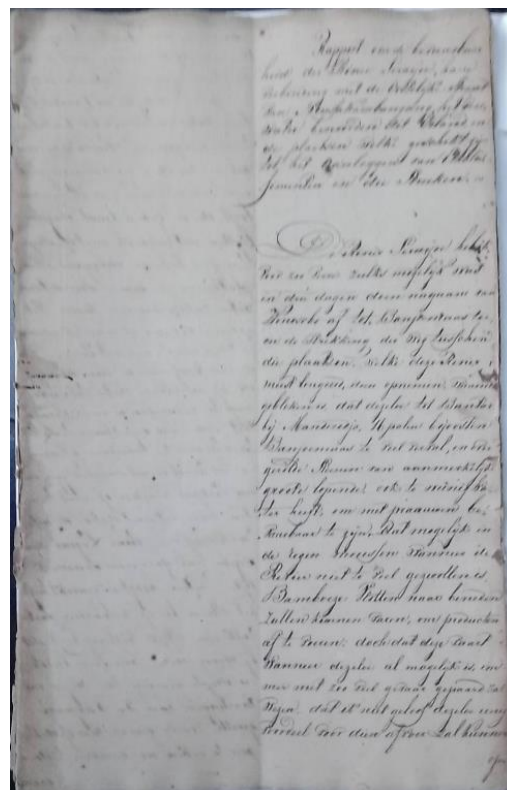 Rapport van de bevaarbaar
heid der Rivier Serayoe, haar
verbinding met de
en
de plaatsen welke geschikt zijn
tot het aanleggen van Etablis
sementen en
De Rivier Serayoe heb ik
voor zoo veel zulks mogelijk was
in drie dagen doen nagaan van
af tot Banjoemaas toe,
en de strekking der weg tusschen
die plaatsen, welke deze Rivier
moet langens, doen opnemen, waaruit
gebleken is, dat dezelve tot Bantar
bij Mandiradja, 16 palen beoosten
Banjoemaas te veel verval, en over
groote steenen van aanmerkelijke
groote loopende, ook te weinig wa,
ter heeft, om met praauwen be,
vaarbaar te zijn, dat mogelijk in
de regen moesson wanneer de
Rivier niet te veel gezwollen is,
Bamboeze vlotten naar beneden
zullen kunnen varen, om producten
af te voeren, doch dat deze vaart
wanneer dezelve al mogelijk is, im
mer met zoo veel gevaar gepaard zal
wezen, dat ik niet geloof dezelve eenig
voordeel voor den afvoer zal kunnen